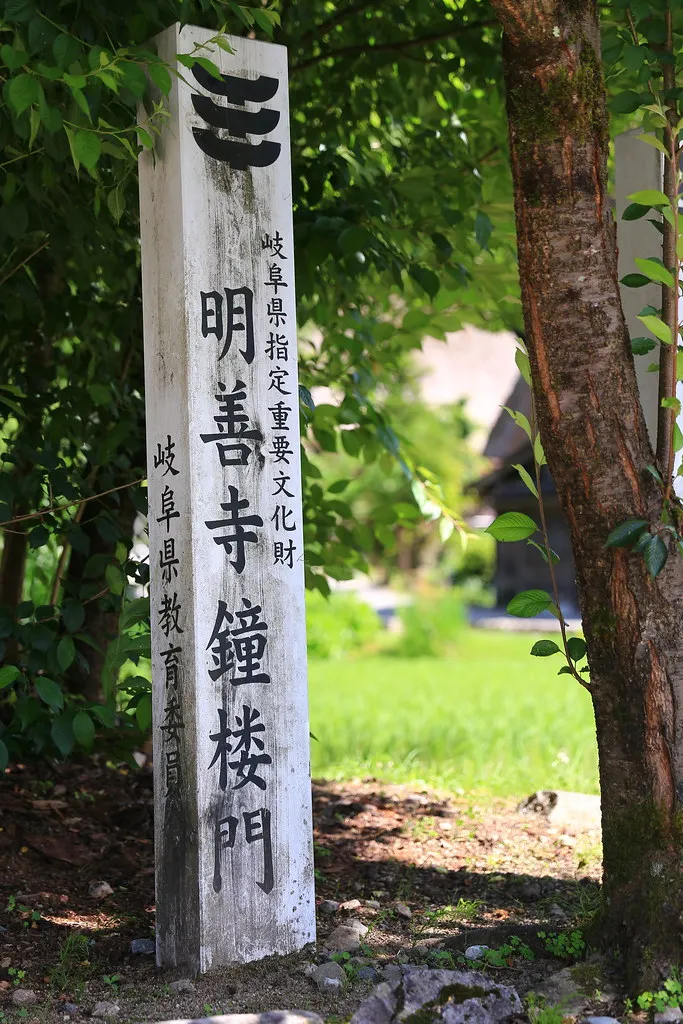 岐阜県指定重要文化財
明善寺鐘楼門
岐阜県教育委員